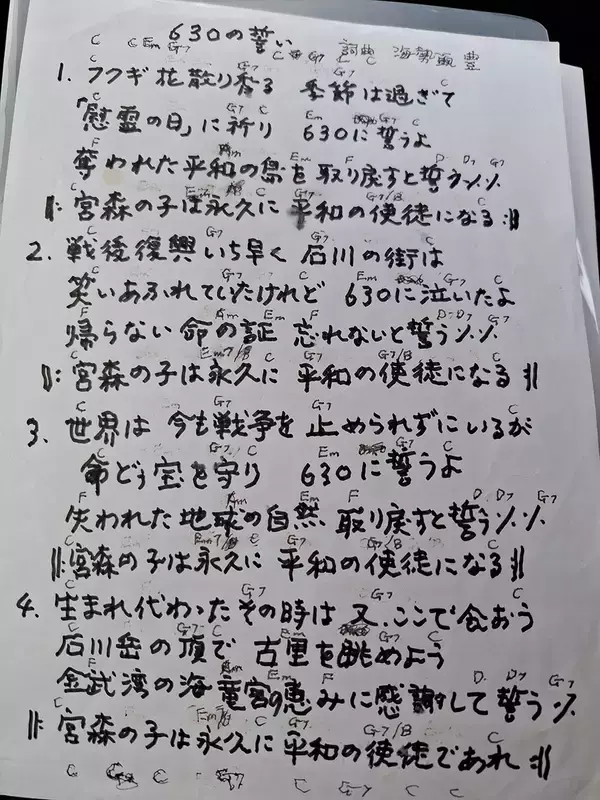 630の誓い
C C Em G7 C G7 C C 詞曲 海勢頭 豊
C G7 G7 C
1. フクギ花散り香る 季節は過ぎて
C G7 C Em G7 C
「慰霊の日」に祈り 630に誓うよ
F Am Em F D D7 G7
奪われた平和の島を取り戻すと誓う〻〻
C C G7 G7/B C
𝄆宮森の子は永久に 平和の使徒になる𝄇
C G7 G7 C
2. 戦後復興いち早く 石川の街は
C G7 C Em G7 C
笑いあふれていたけれど 630に泣いたよ
F Am Em F D D7 G7
帰らない命の証 忘れないと誓う〻〻
C Em7/B C G7 G7/B C
𝄆宮森の子は永久に 平和の使徒になる𝄇
C G7 G7 C
3. 世界は 今も戦争を 止められずにいるが
C G7 C Em G7 C
命どぅ宝を守り 630に誓うよ
F Am Em F D D7 G7
失われた地球の自然 取り戻すと誓う〻〻
C C G7 G7/B C
𝄆宮森の子は永久に 平和の使徒になる𝄇
C G7 G7 C
4. 生まれ代わったその時は 又、ここで会おう
C G7 C Em G7 C
石川岳の頂で 古里を眺めよう
F Am Em F D D7 G7
金武湾の海 竜宮の恵みに感謝して誓う〻
C C G7 G7/B C
𝄆宮森の子は永久に 平和の使徒であれ𝄇
C C G7 C G7 C C